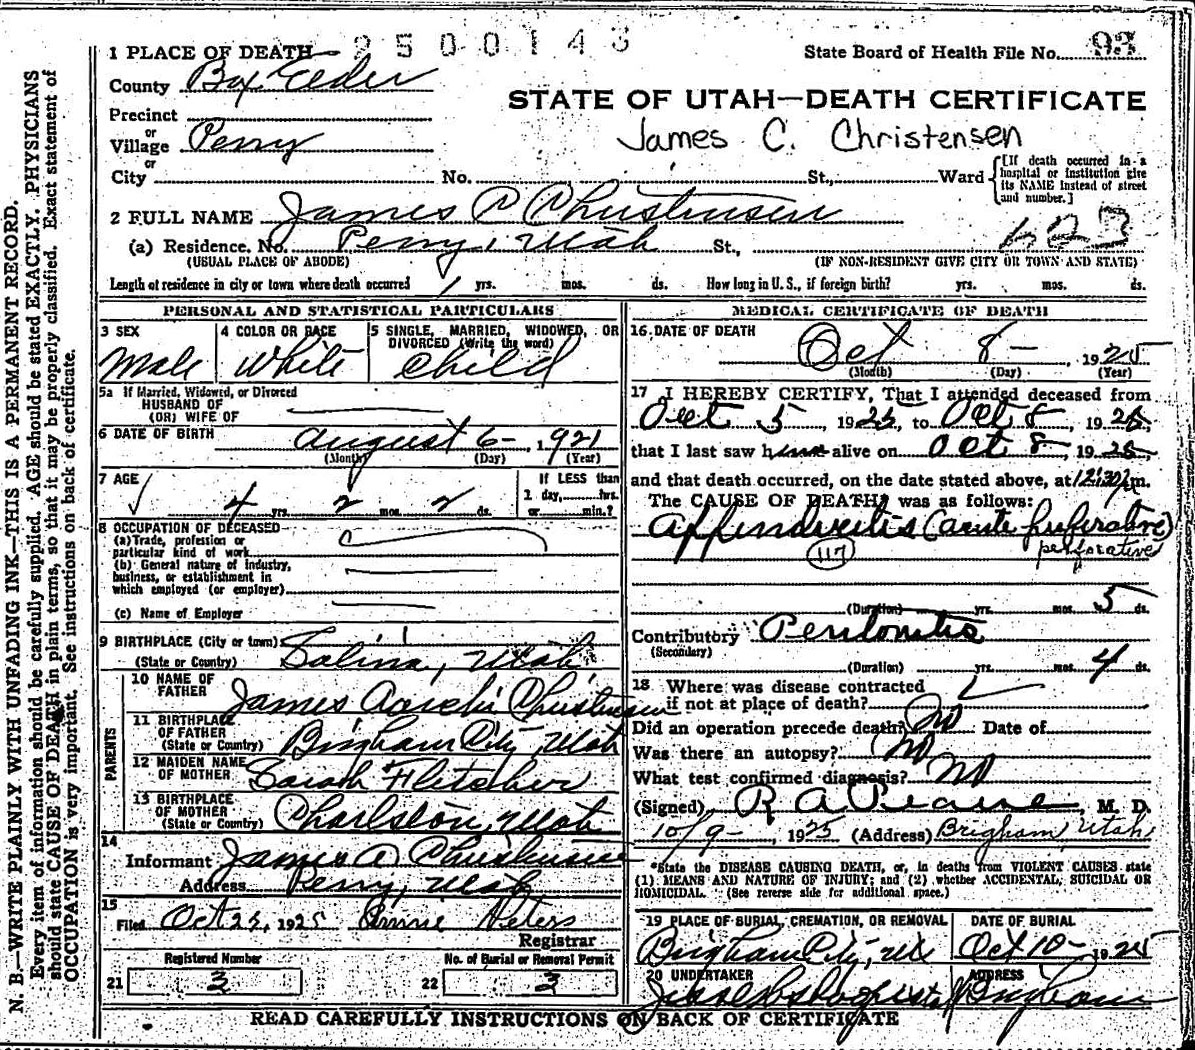 2500143
1 PLACE OF DEATH
State Board of Health File No. 93
County Box Elder
STATE OF UTAH—DEATH CERTIFICATE
Precinct
or
Village Perry
James C. Christensen
or
City No. St., Ward
[If death occurred in a hospital or institution give its NAME instead of street and number.]
2 FULL NAME James C Christensen
623
(a) Residence. No. Perry, Utah St.,
(USUAL PLACE OF ABODE) (IF NON-RESIDENT GIVE CITY OR TOWN AND STATE)
Length of residence in city or town where death occurred 1 yrs. mos. ds. How long in U. S., if foreign birth? yrs. mos. ds.
PERSONAL AND STATISTICAL PARTICULARS
3 SEX
Male
4 COLOR OR RACE
White
5 SINGLE, MARRIED, WIDOWED, OR
DIVORCED (Write the word)
Child
5a If Married, Widowed, or Divorced
HUSBAND OF
(OR) WIFE OF
6 DATE OF BIRTH August 6- 1921
(Month) (Day) (Year)
7 AGE
4 yrs. 2 mos. 2 ds.
If LESS than
1 day, hrs.
or min.?
8 OCCUPATION OF DECEASED
(a) Trade, profession or
particular kind of work
(b) General nature of industry,
business, or establishment in
which employed (or employer)
(c) Name of Employer
9 BIRTHPLACE (City or town)
(State or Country) Salina, Utah
PARENTS
10 NAME OF
FATHER James Christensen
11 BIRTHPLACE
OF FATHER
(State or Country) Brigham City, Utah
12 MAIDEN NAME
OF MOTHER Sarah Fletcher
13 BIRTHPLACE
OF MOTHER
(State or Country) Charlston, Utah
14
Informant James A Christensen
Address Perry, Utah
15
Filed Oct 25, 1925 Annie Peters
Registrar
Registered Number
21 3
No. of Burial or Removal Permit
22 3
MEDICAL CERTIFICATE OF DEATH
16 DATE OF DEATH
Oct 8- 1925
(Month) (Day) (Year)
17 I HEREBY CERTIFY, That I attended deceased from
Oct 5 1925, to Oct 8, 1925,
that I last saw him alive on Oct 8, 1925
and that death occurred, on the date stated above, at 12:30 p.m.
The CAUSE OF DEATH* was as follows:
Appendicitis (acute
117
perforative
(Duration) yrs. mos. 5 ds.
Contributory Peritonitis
(Secondary)
(Duration) yrs. mos. 4 ds.
18 Where was disease contracted
if not at place of death?
Did an operation precede death? No Date of
Was there an autopsy? No
What test confirmed diagnosis? No
(Signed) R A Pearse, M. D.
10/9-, 1925 (Address) Brigham, Utah
*State the DISEASE CAUSING DEATH, or, in deaths from VIOLENT CAUSES state
(1) MEANS AND NATURE OF INJURY; and (2) whether ACCIDENTAL, SUICIDAL OR
HOMICIDAL. (See reverse side for additional space.)
19 PLACE OF BURIAL, CREMATION, OR REMOVAL
Brigham City, Ut
DATE OF BURIAL
Oct 10- 1925
20 UNDERTAKER
ADDRESS
Brigham
READ CAREFULLY INSTRUCTIONS ON BACK OF CERTIFICATE
N. B.—WRITE PLAINLY WITH UNFADING INK—THIS IS A PERMANENT RECORD.
Every item of information should be carefully supplied. AGE should be stated EXACTLY. PHYSICIANS
should state CAUSE OF DEATH in plain terms, so that it may be properly classified. Exact statement of
OCCUPATION is very important. See instructions on back of certificate.